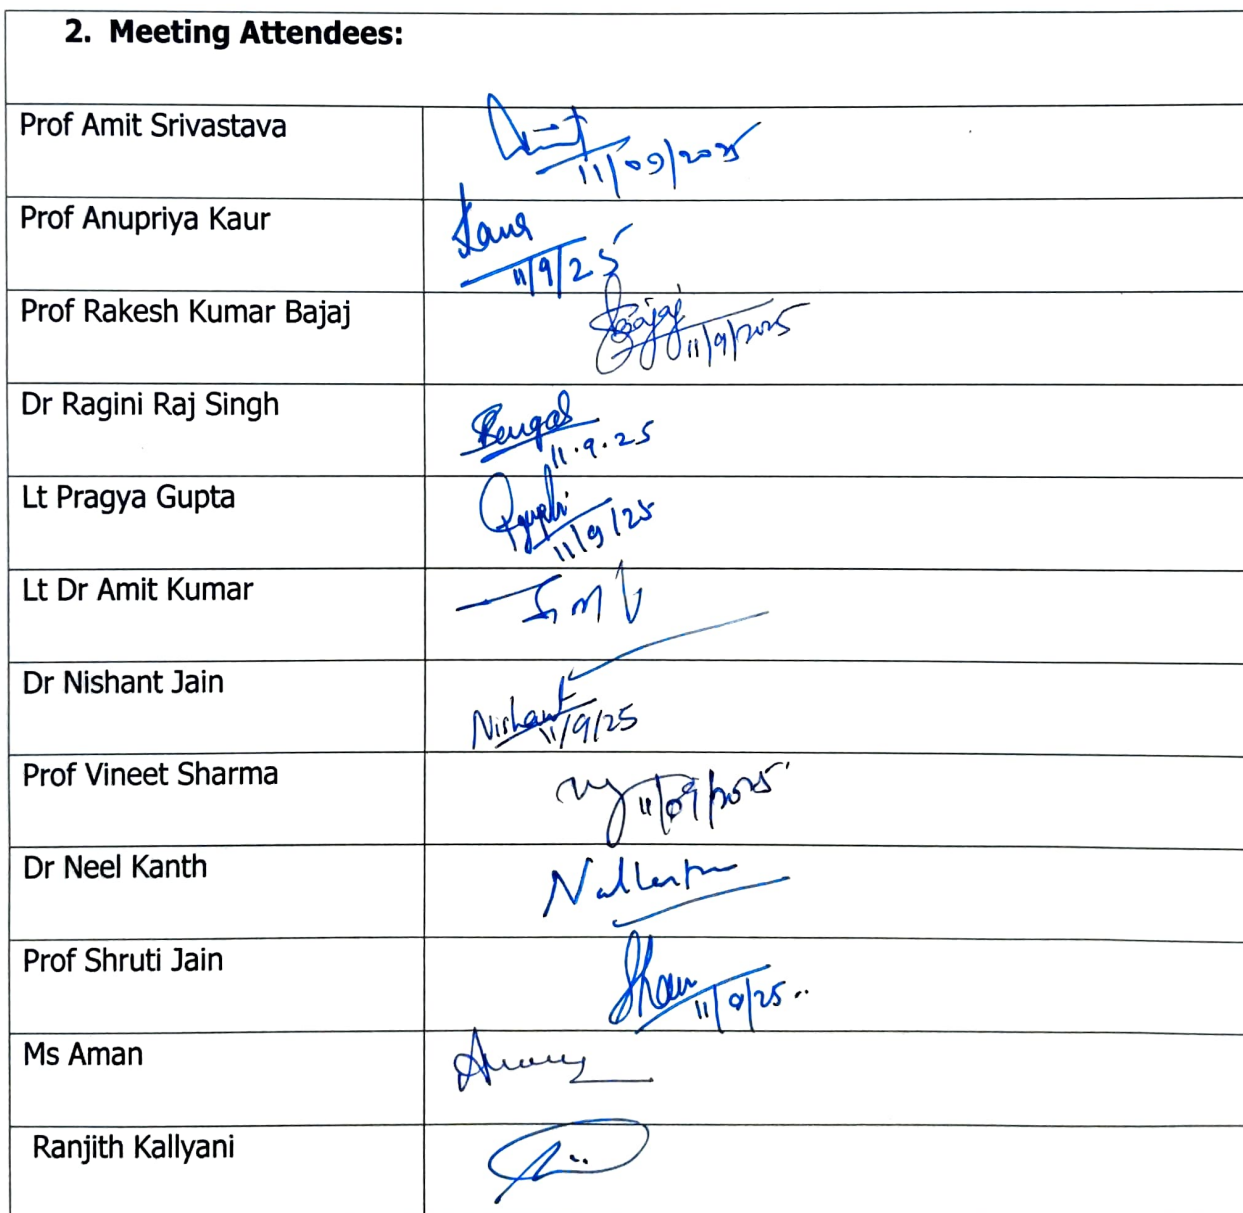 2. Meeting Attendees:
Prof Amit Srivastava
Amit
11/09/2025
Prof Anupriya Kaur
Kaur
11/9/25
Prof Rakesh Kumar Bajaj
Bajaj
11/9/2025
Dr Ragini Raj Singh
11.9.25
Lt Pragya Gupta
11/9/25
Lt Dr Amit Kumar
Dr Nishant Jain
Nishant
11/9/25
Prof Vineet Sharma
11/09/2025
Dr Neel Kanth
Prof Shruti Jain
11/9/25
Ms Aman
Ranjith Kallyani